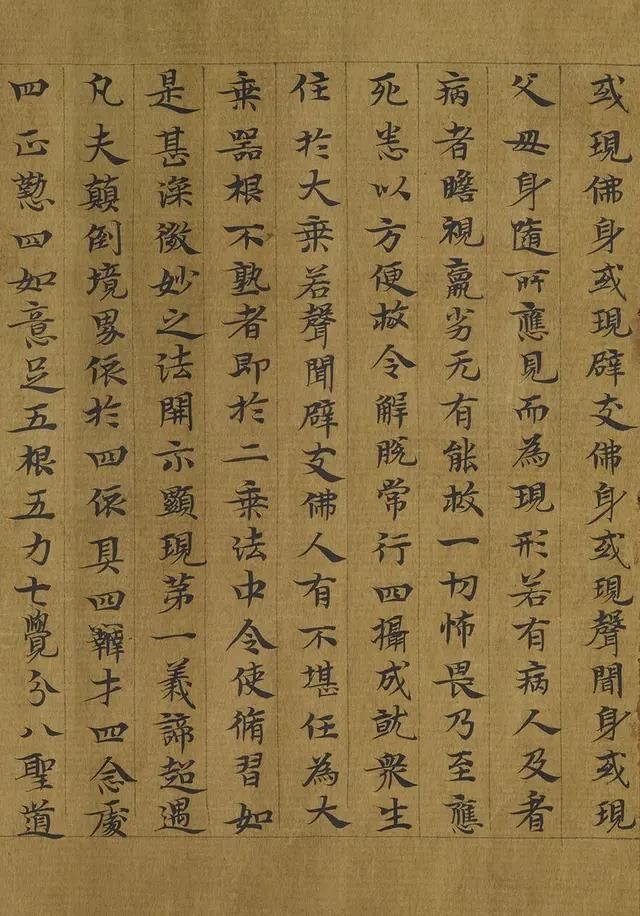 或現佛身或現辟支佛身或現聲聞身或現
父母身隨所應見而為現形若有病人及者
病者瞻視羸劣无有能救一切怖畏乃至應
死恙以方便救令解脫常行四攝成就衆生
住於大乘若聲聞辟支佛人有不堪任為大
乘器根不熟者即於二乘法中令使脩習如
是甚深微妙之法開示顯現苐一義諦超過
凡夫顛倒境界依於四依具四辯才四念處
四正懃四如意足五根五力七覺分八聖道